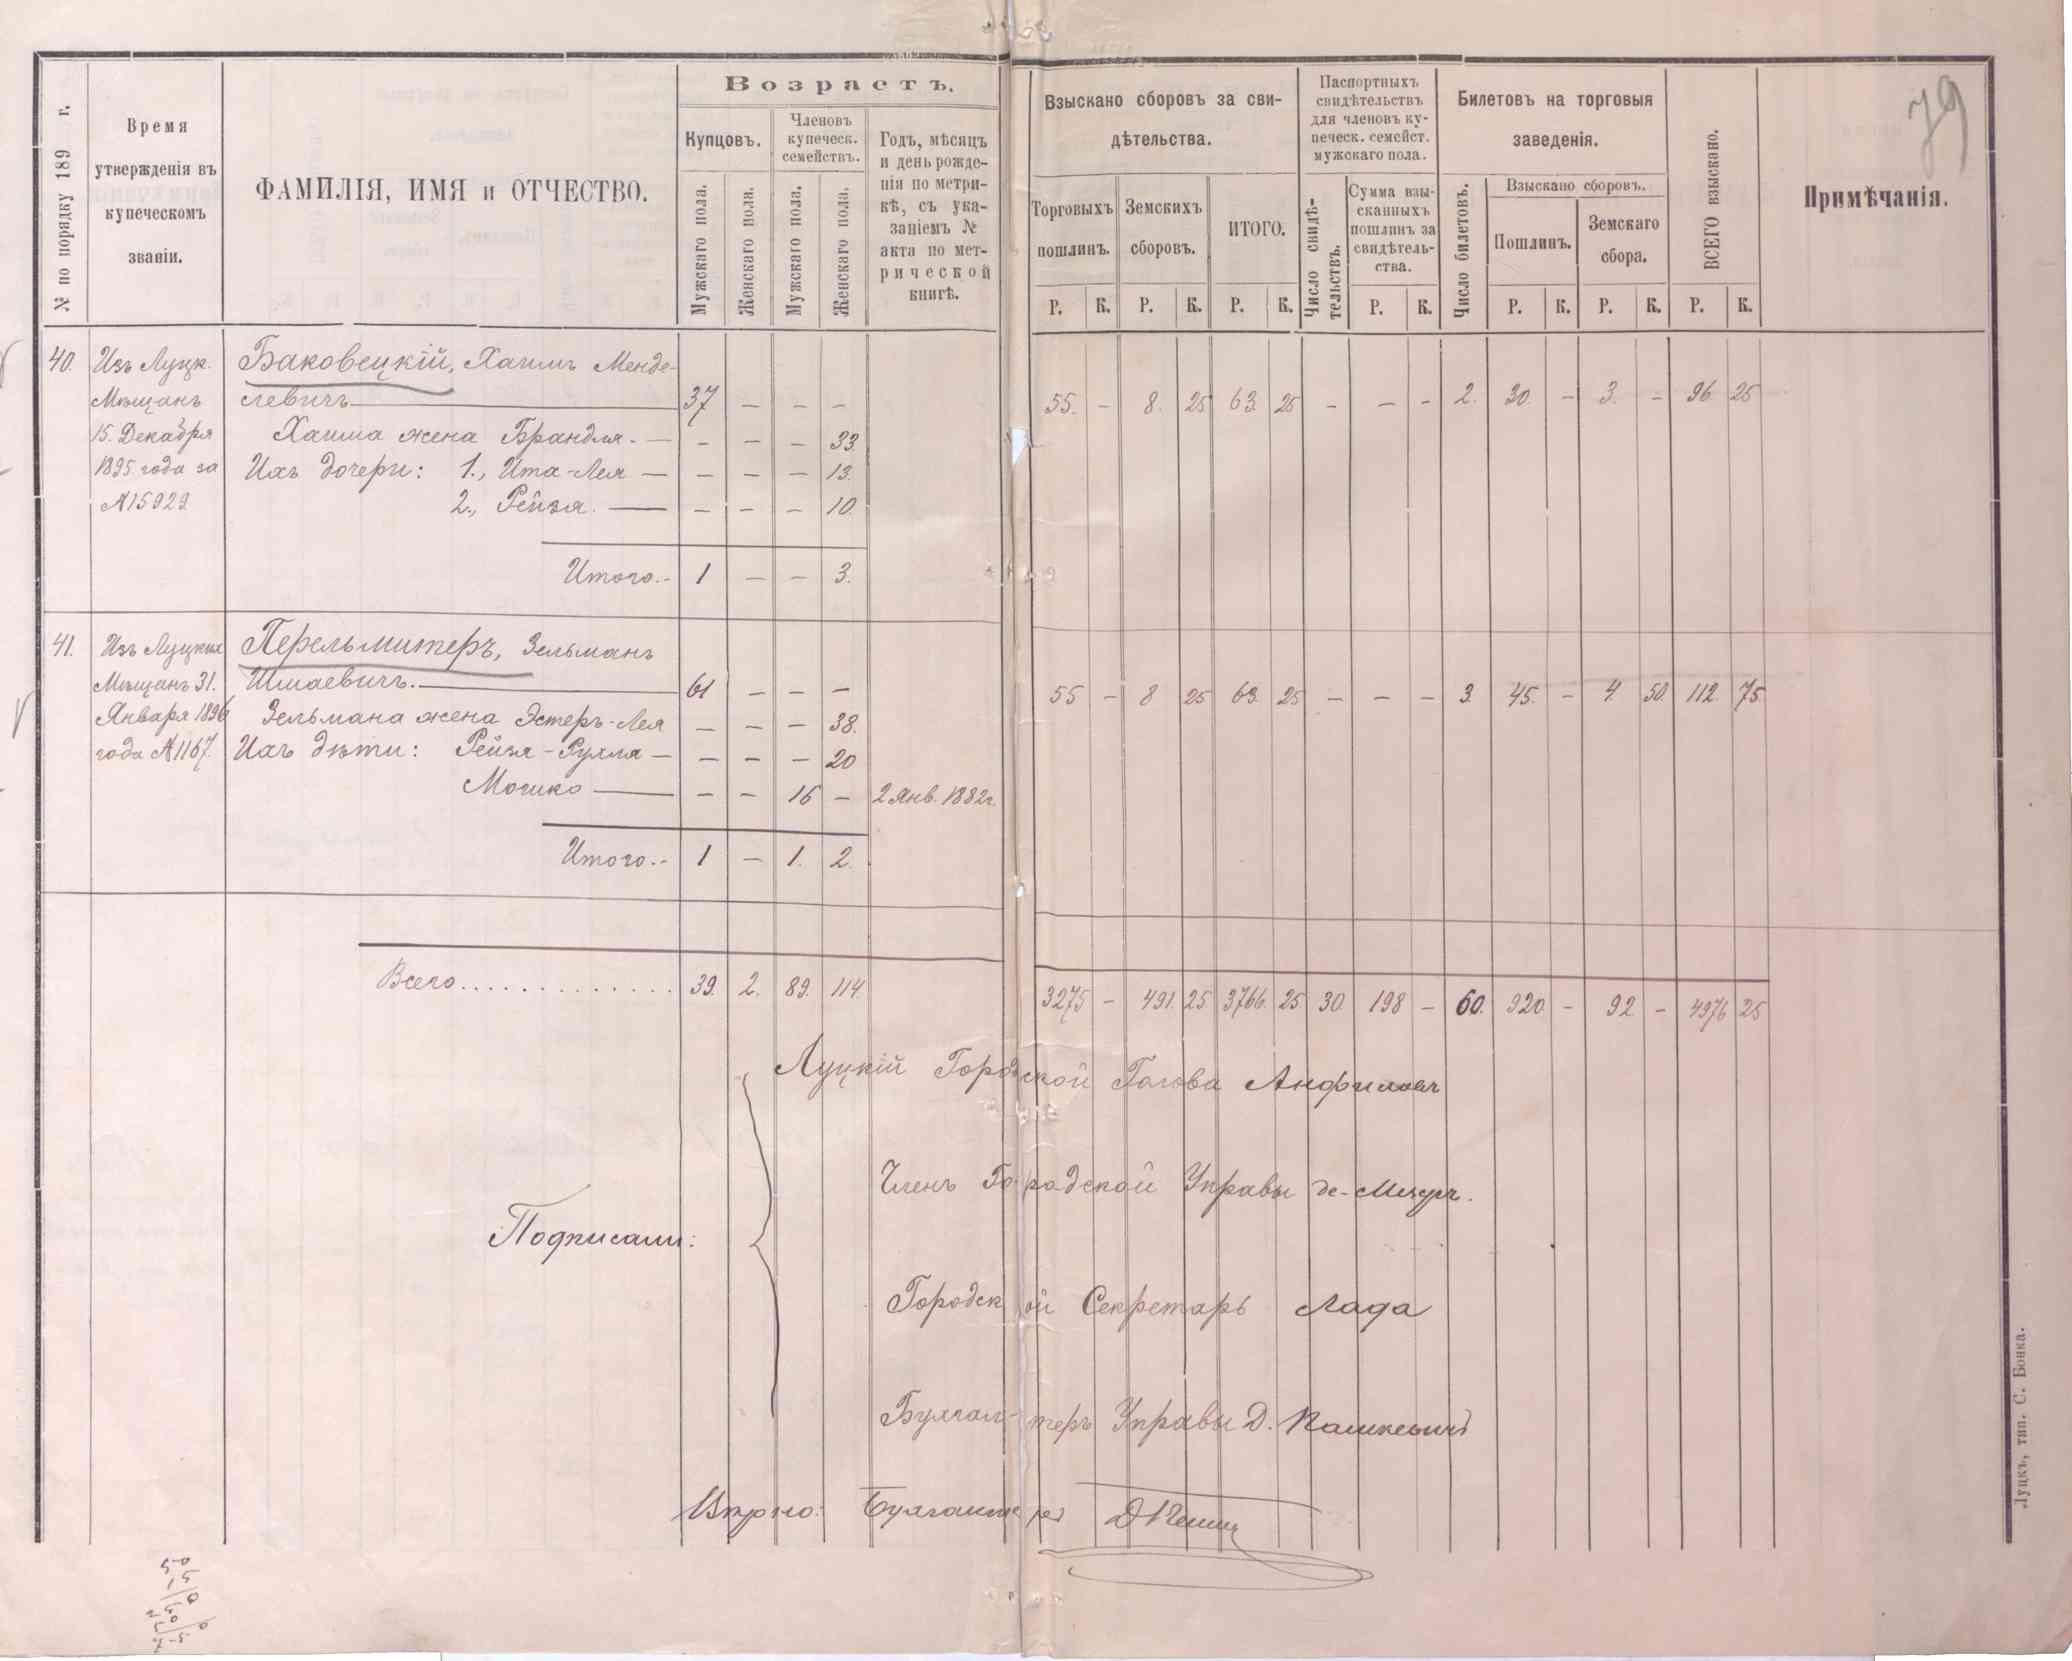 79
№ по порядку 189 г.
Время утвержденія въ купеческомъ званіи.
ФАМИЛІЯ, ИМЯ и ОТЧЕСТВО.
Возрастъ.
Купцовъ.
Мужскаго пола.
Женскаго пола.
Членовъ купеческ. семействъ.
Мужскаго пола.
Женскаго пола.
Годъ, мѣсяцъ
и день рожде-
нія по метри-
кѣ, съ ука-
заніемъ №
акта по мет-
рической
книгѣ.
Взыскано сборовъ за сви-
дѣтельства.
Торговыхъ пошлинъ.
Земскихъ сборовъ.
ИТОГО.
Паспортныхъ
свидѣтельствъ
для членовъ ку-
печеск. семейст.
мужскаго пола.
Число свидѣ-
тельствъ.
Сумма взы-
сканныхъ
пошлинъ за
свидѣтель-
ства.
Билетовъ на торговыя
заведенія.
Число билетовъ.
Взыскано сборовъ.
Пошлинъ.
Земскаго сбора.
ВСЕГО взыскано.
Примѣчанія.
Р. К. Р. К. Р. К. Р. К. Р. К. Р. К. Р. К.
40. Изъ Луцк. Баковецкій, Хаимъ Менде-
Мѣщанъ левичъ 37 — — — 55. - 8. 25 63. 25 - - - 2. 30. - 3. - 96 25
15. Декабря Хаима жена Брандля. — — — — 33.
1895 года за Ихъ дочери: 1., Ита-Лея — — — — 13.
№ 15929 2., Рейзя. — — — — 10.
Итого.- 1 — — 3.
41. Изъ Луцкихъ Перельмитеръ, Зельманъ
Мѣщанъ 31. Шмаевичъ. 61 — — — 55 - 8 25 63. 25 - - - 3. 45. - 4. 50. 112. 75.
Января 1896 Зельмана жена Эстеръ-Лея — — — 38.
года № 1167. Ихъ дѣти: Рейзя-Рухля — — — — 20
Мошко — — — 16 — 2 Янв. 1882г.
Итого.- 1 — 1. 2.
Всего.............. 39. 2. 89. 114. 3275 - 491. 25 3766. 25 30. 198 - 60. 920. - 92 - 4976 25
Луцкій Городской Голова Анфиловъ
Членъ Городской Управы
Подписали:
Городской Секретарь Лада
Бухгалтеръ Управы Д. Пашкевичъ
Вѣрно: Бухгалтеръ
Луцкъ, тип. С. Бонка.